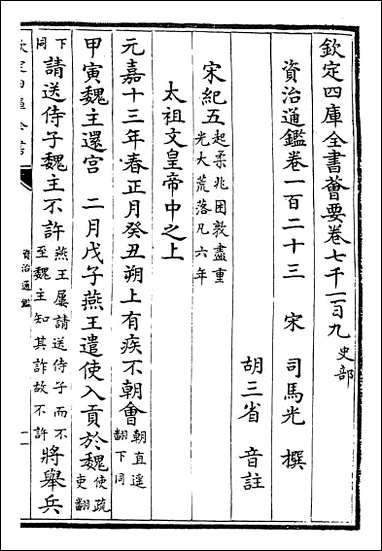 欽定四庫全書薈要卷七千一百九 史部
資治通鑑卷一百二十三 宋 司馬光 撰
胡三省 音註
宋紀五 起柔兆困敦盡重
光大荒落凡六年
太祖文皇帝中之上
元嘉十三年春正月癸丑朔上有疾不朝會 朝直遥
翻下同
甲寅魏主還宮 二月戊子燕王遣使入貢於魏 使疏
吏翻
下
同 請送侍子魏主不許 燕王屢請送侍子而不
至魏主知其詐故不許 將舉兵
資治通鑑